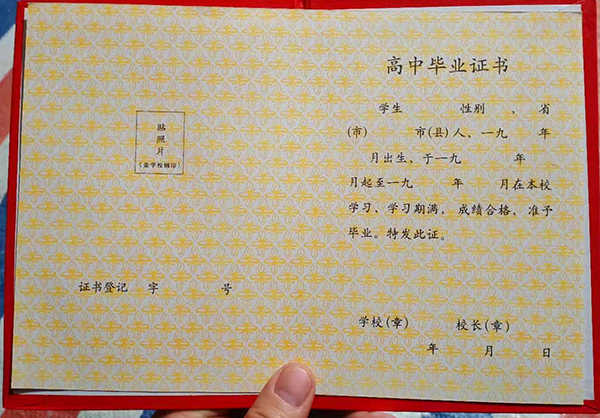 贴
照
片
(盖学校钢印)
证书登记 字 号
高中毕业证书
学生 性别 、 省
(市) 市(县)人、一九 年
月出生、于一九 年
月起至一九 年 月在本校
学习、学习期满, 成绩合格, 准予
毕业。特发此证。
学校(章) 校长(章)
年 月 日